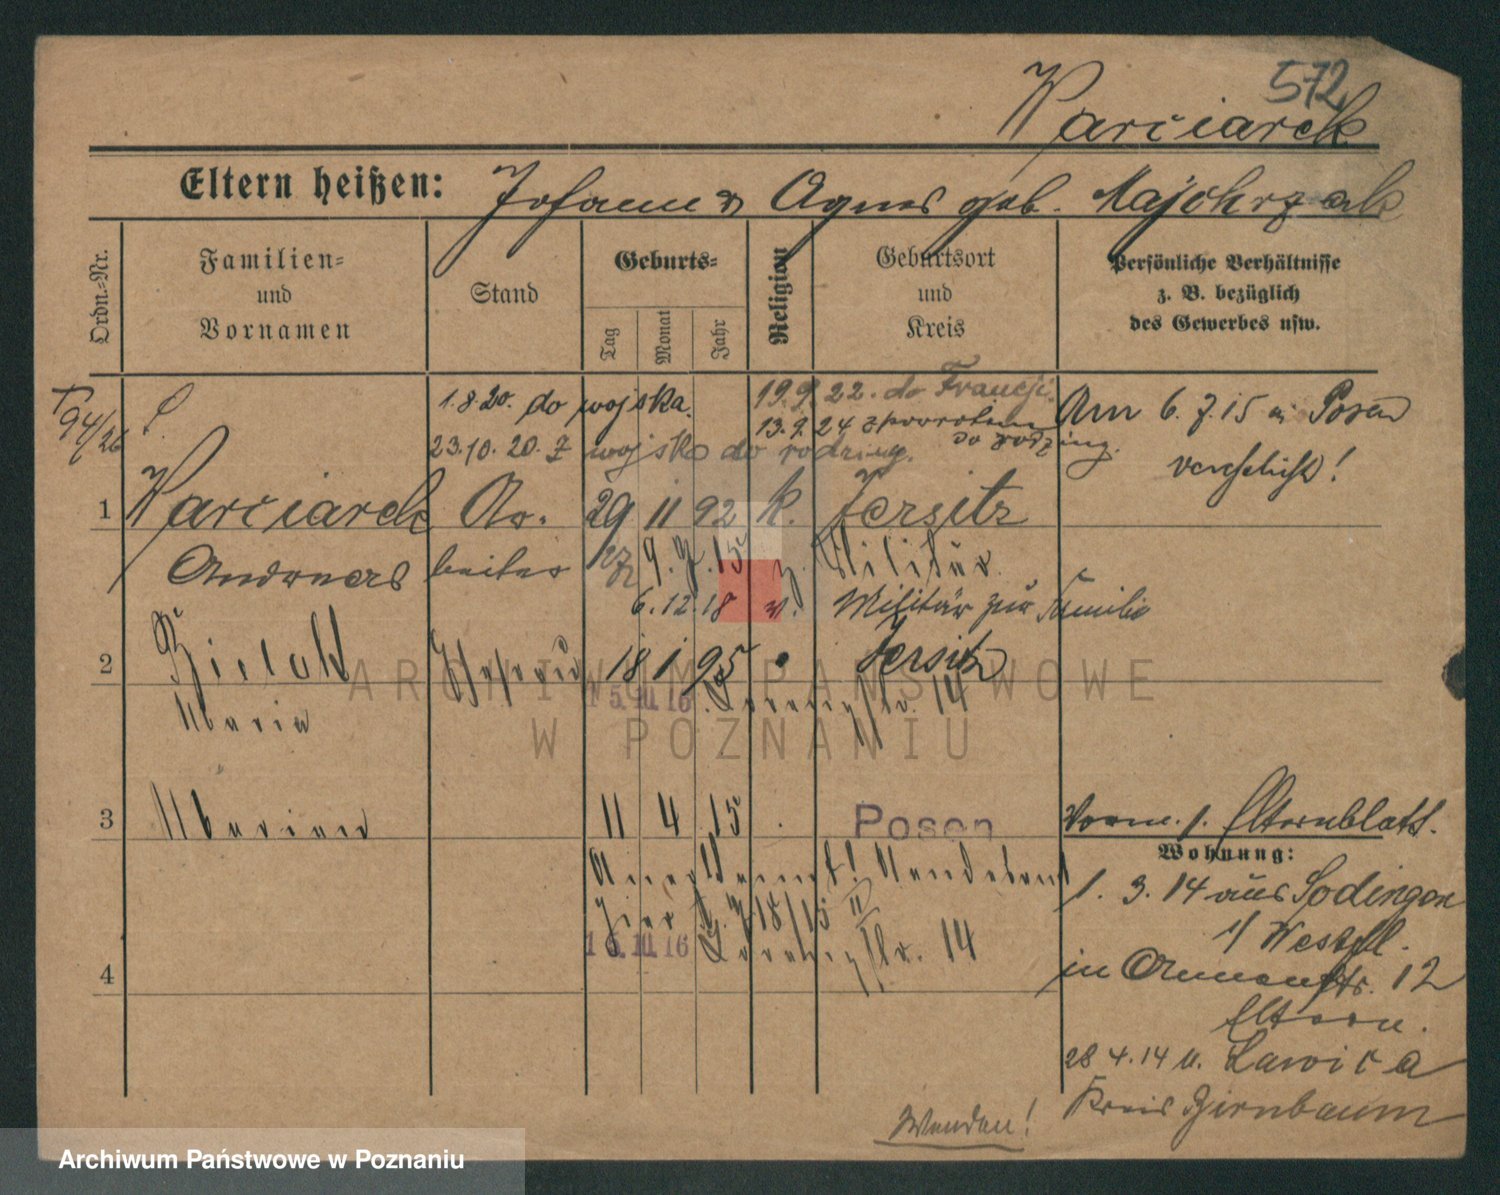 572
Karciarek
Eltern heißen: Johann & Agnes geb. Majchrzak
Ordn.-Nr.
Familien-
und
Vornamen
Stand
Geburts-
Tag
Monat
Jahr
Religion
Geburtsort
und
Kreis
Persönliche Verhältnisse
z. B. bezüglich
des Gewerbes usw.
94/26
1.8.20. do wojska.
19.9.22. do Francji.
23.10.20. z wojska do rodziny.
13.9.24 z powrotem
do rodziny.
Am 6.7.15 in Posen
verehelicht!
1 Karciarek Ar- 29 11 92 k. Jersitz
Andreas beiter 9.7.15 z. Militär
6.12.18 v. Militär zur Familie
2 Ehefrau 18 1 95 Jersitz
Maria 15.III.16 14
3 11 4 15 Posen
Anerkannt!
18/15
15.III.16 14
4
Vorm. s. Elternblatt.
Wohnung:
1. 3. 14 aus Sodingen
i/ Westfl.
in 12
Eltern.
28.4.14 n. Lawica
Kreis Birnbaum
Wenden!
ARCHIWUM PAŃSTWOWE
W POZNANIU
Archiwum Państwowe w Poznaniu